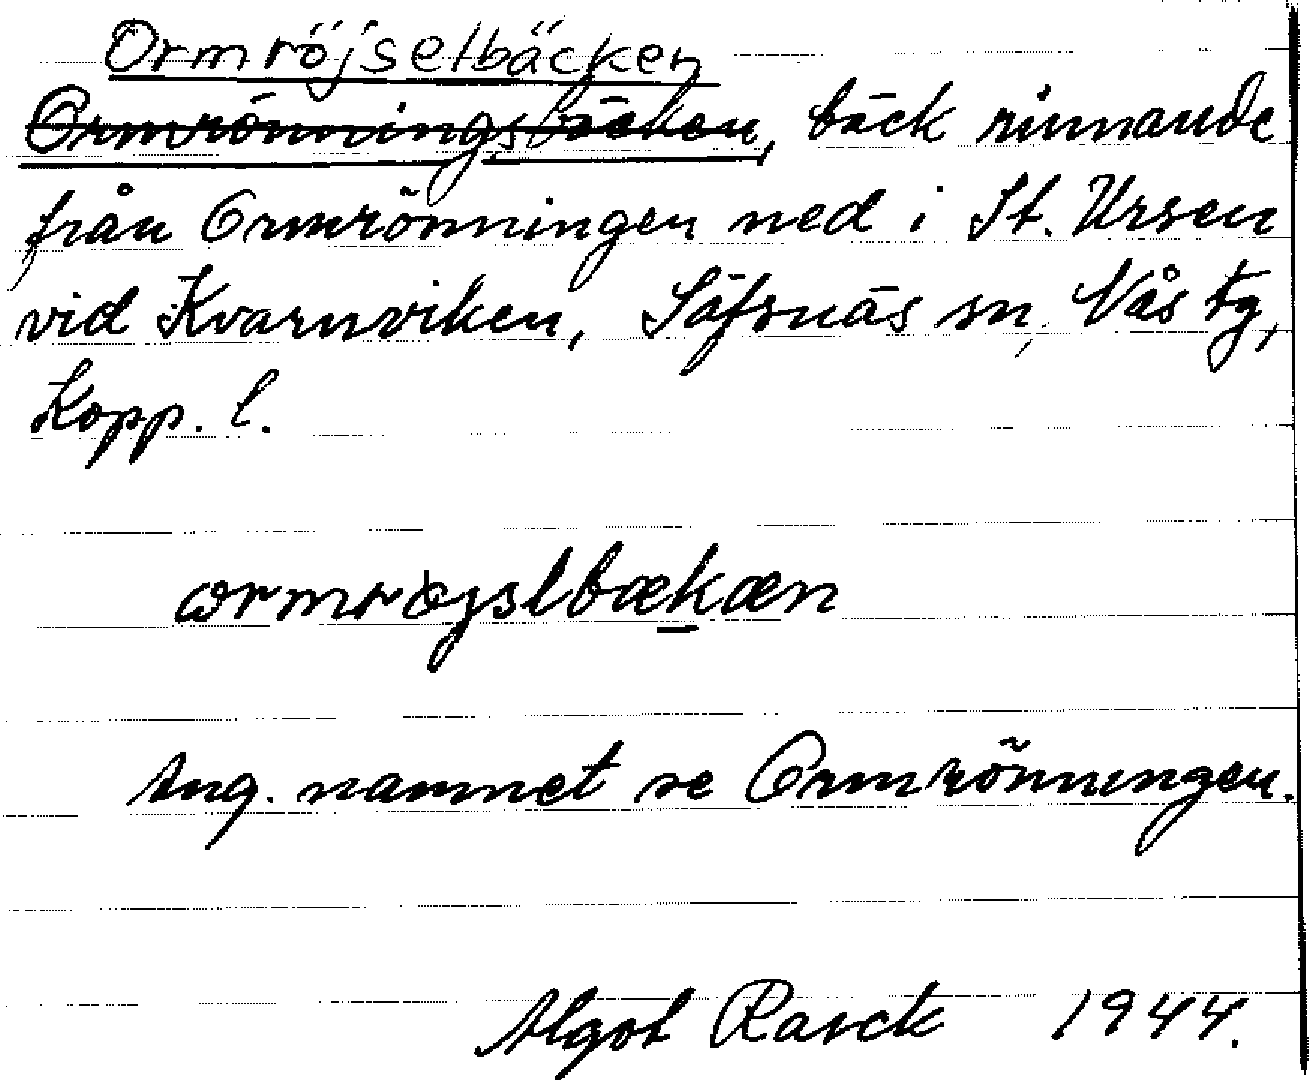 Ormröjselbäcken
Ormrönningsbäcken, bäck rinnande
från Ormrönningen ned i St. Ursen
vid Kvarnviken, Säfsnäs sn, Nås tg,
Kopp. l.
ωrmröjslbækæn
Ang. namnet se Ormrönningen.
Algot Rasck 1944.